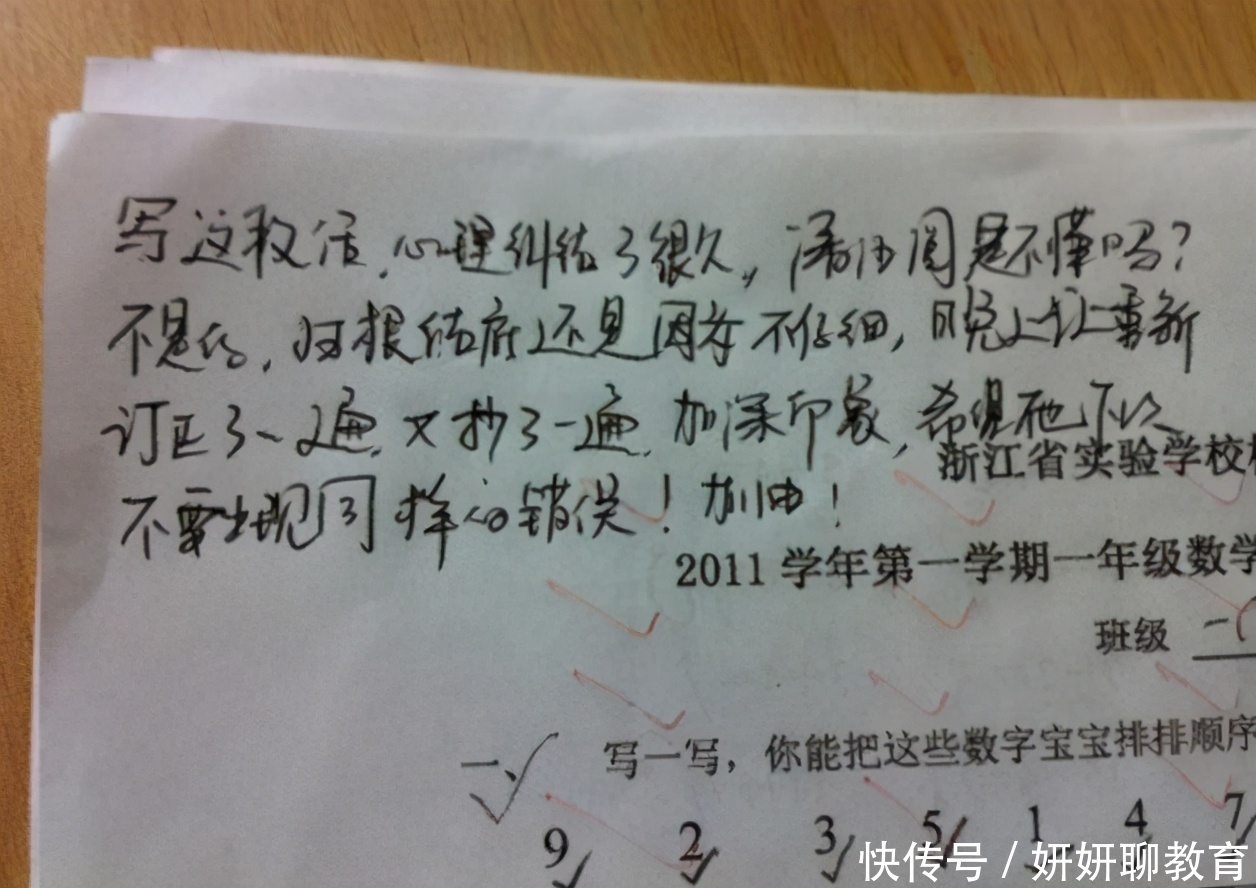 写这段话,心理纠结了很久,是不懂吗?
不是的,归根结底还是因为不仔细,晚上让重新
订正了一遍,又抄了一遍,加深印象,希望他下次
不要出现同样的错误!加油!
浙江省实验学校
2011学年第一学期一年级数学
班级 一(
一、 写一写,你能把这些数字宝宝排排顺序
9 2 3 5 1 4 7
快传号/妍妍聊教育